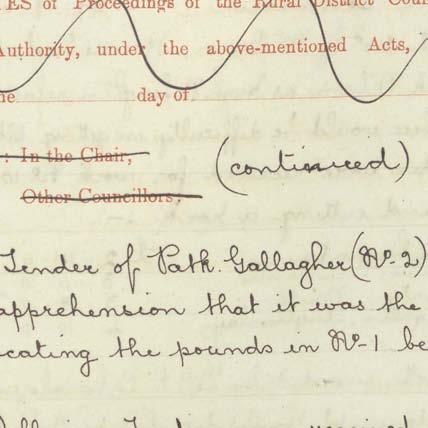 ES of Proceedings of the Rural District Coun
Authority, under the above-mentioned Acts,
he day of
: In the Chair,
(continued)
Other Councillors:
Tender of Patk. Gallagher (No. 2)
apprehension that it was the
cating the pounds in No. 1 be
received